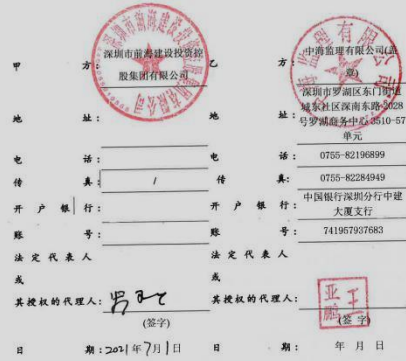 甲 方：深圳市前海建设投资控股集团有限公司
地 址：
电 话：
传 真： /
开 户 银 行：
账 号：
法定代表人
或
其授权的代理人：
(签字)
日 期：2021年7月1日
乙 方：中海监理有限公司(盖章)
地 址：深圳市罗湖区东门街道城东社区深南东路2028号罗湖商务中心3510-57单元
电 话：0755-82196899
传 真：0755-82284949
开 户 银 行：中国银行深圳分行中建大厦支行
账 号：741957937683
法定代表人
或
其授权的代理人：
王亚鹏
(签字)
日 期： 年 月 日